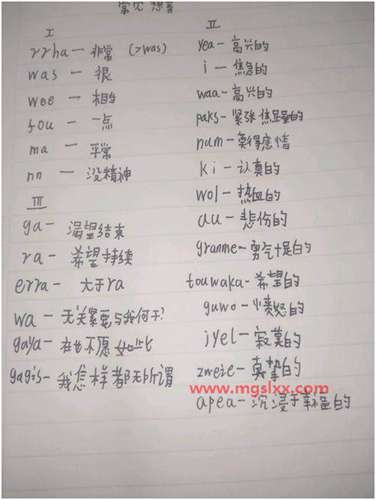 常见想音
I
rrha — 非常 (>was)
was — 很
wee — 相当
fou — 一点
ma — 平常
nn — 没精神
III
ga — 渴望结束
ra — 希望持续
erra — 大于ra
wa — 无关紧要与我何干?
gaya — 在也不愿如此
gagis — 我怎样都无所谓
II
yea — 高兴的
i — 焦急的
waa — 高兴的
paks — 紧张焦虑的
num — 莫得感情
ki — 认真的
wol — 热血的
au — 悲伤的
granme — 勇气十足的
touwaka — 希望的
guwo — 愤怒的
jyel — 寂寞的
zweie — 真挚的
www.mgslxx.com
apea — 沉浸于幸福的